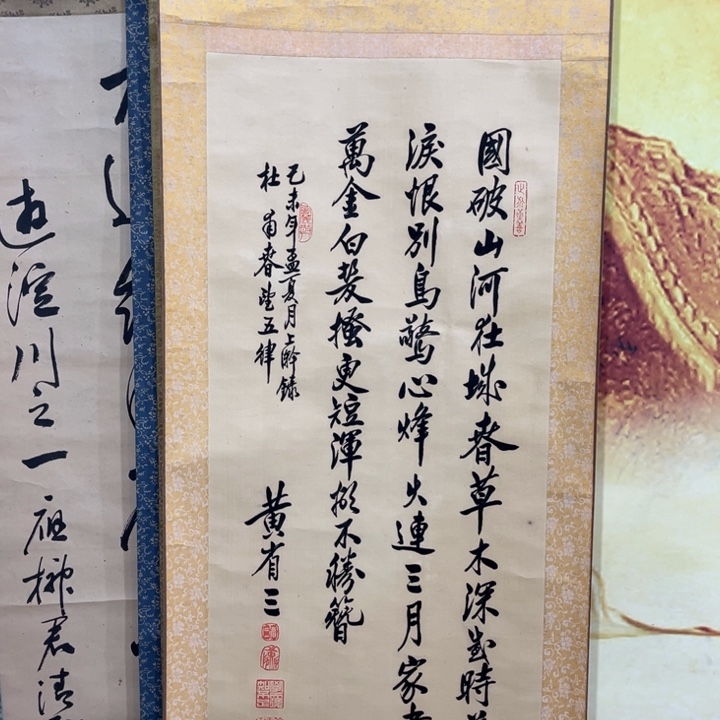 國破山河在城春草木深感時花
淚恨別鳥驚心烽火連三月家書
萬金白髮搔更短渾欲不勝簪
己未年孟夏月上澣錄
杜甫春望五律
黃省三
遊淀川之一應榊君清